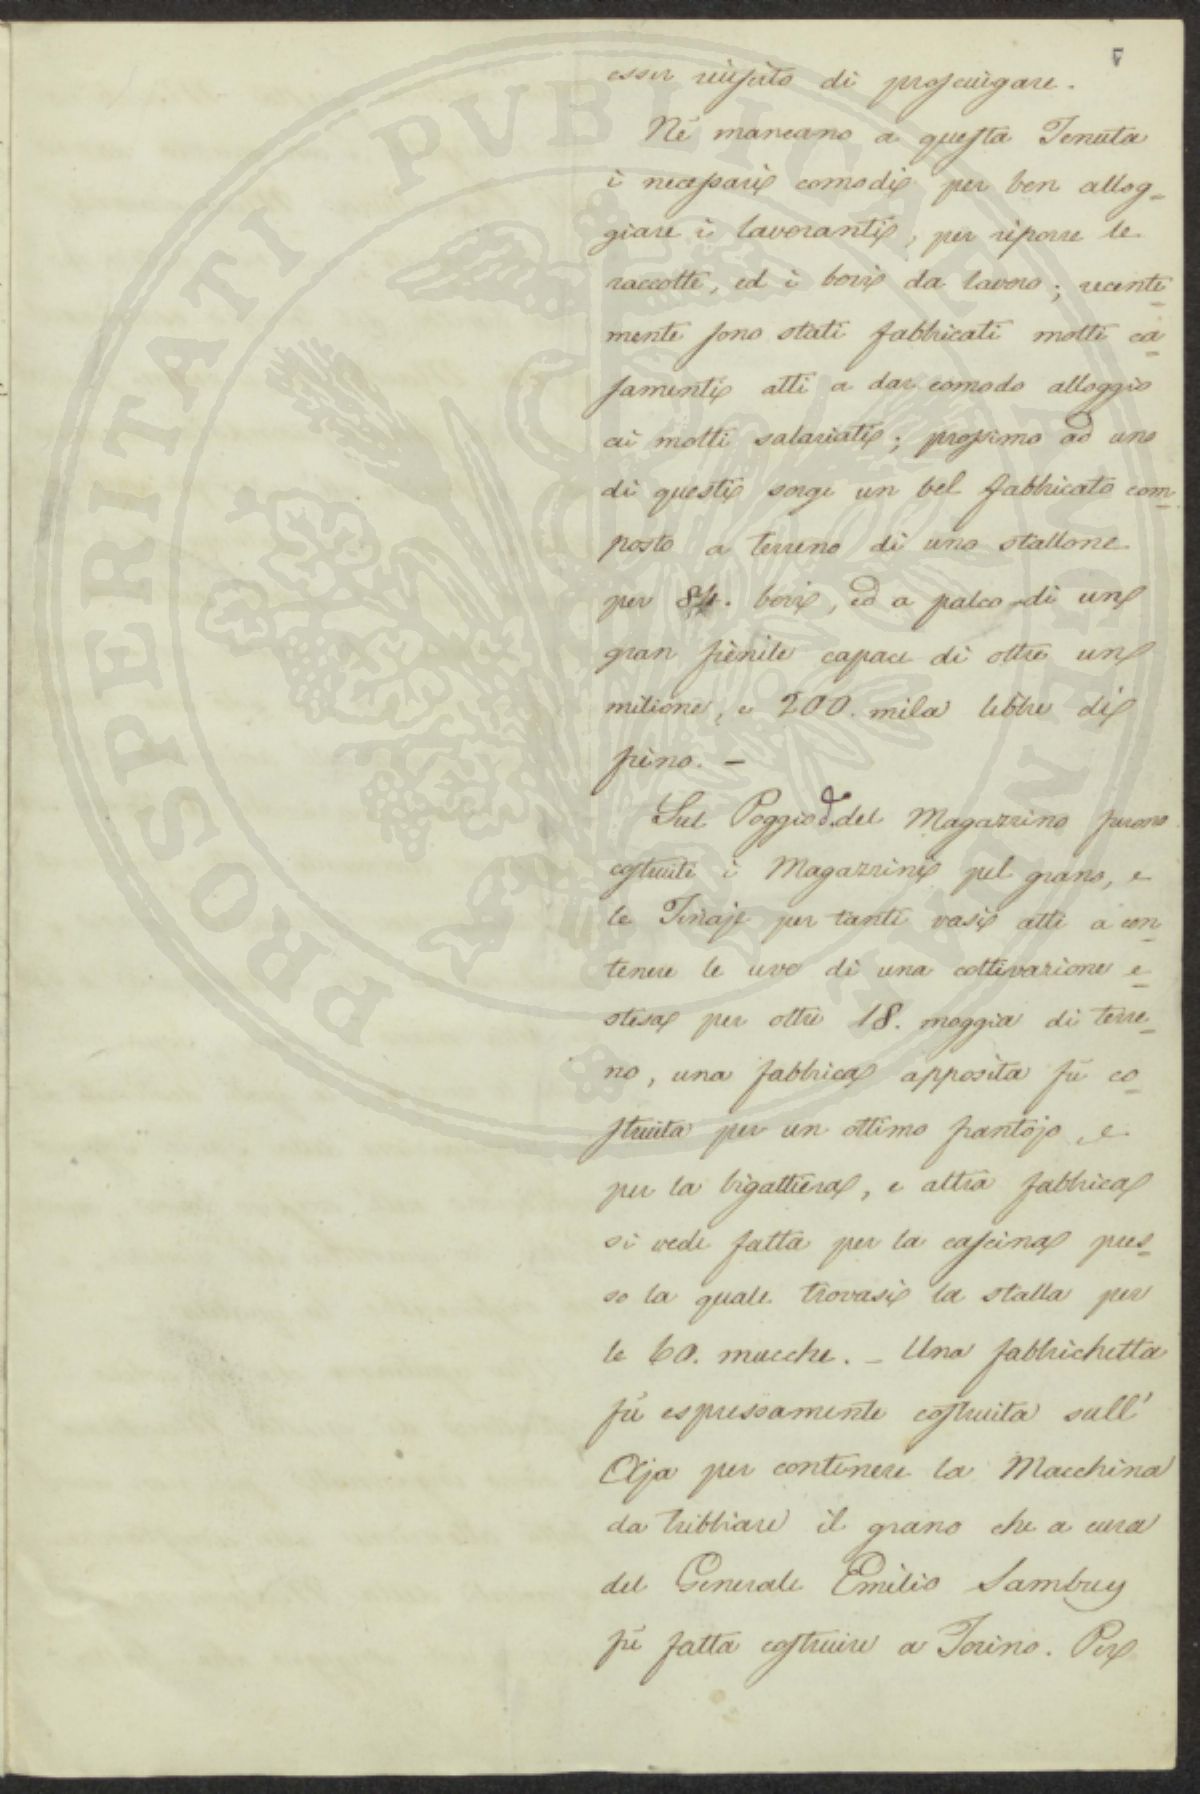 7
esser riuscito di prosciugare.
Né mancano a questa Tenuta
i necessarj comodi per ben allog-
giare i lavoranti, per riporre le
raccolte, ed i bovi da lavoro; recente-
mente sono stati fabbricati molti ca-
samenti atti a dar comodo alloggio
ai molti salariati; prossimo ad uno
di questi sorge un bel fabbricato com-
posto a terreno di uno stallone
per 84. bovi, ed a palco di un
gran fienile capace di oltre un
milione, e 200. mila libbre di
fieno. -
Sul Poggio d.° del Magazzino furono
costruiti i Magazzini pel grano, e
le Tinaje per tanti vasi atti a con-
tenere le uve di una coltivazione e-
stesa per oltre 18. moggia di terre-
no, una fabbrica apposita fù co-
struita per un ottimo frantojo, e
per la bigattiera, e altra fabbrica
si vede fatta per la cascina pres-
so la quale trovasi la stalla per
le 60. mucche. - Una fabbrichetta
fù espressamente costruita sull'
Aja per contenere la Macchina
da tribbiare il grano che a cura
del Generale Emilio Sambuy
fù fatta costruire a Torino. Per
PROSPERITATI PVBLICAE AVGENDAE